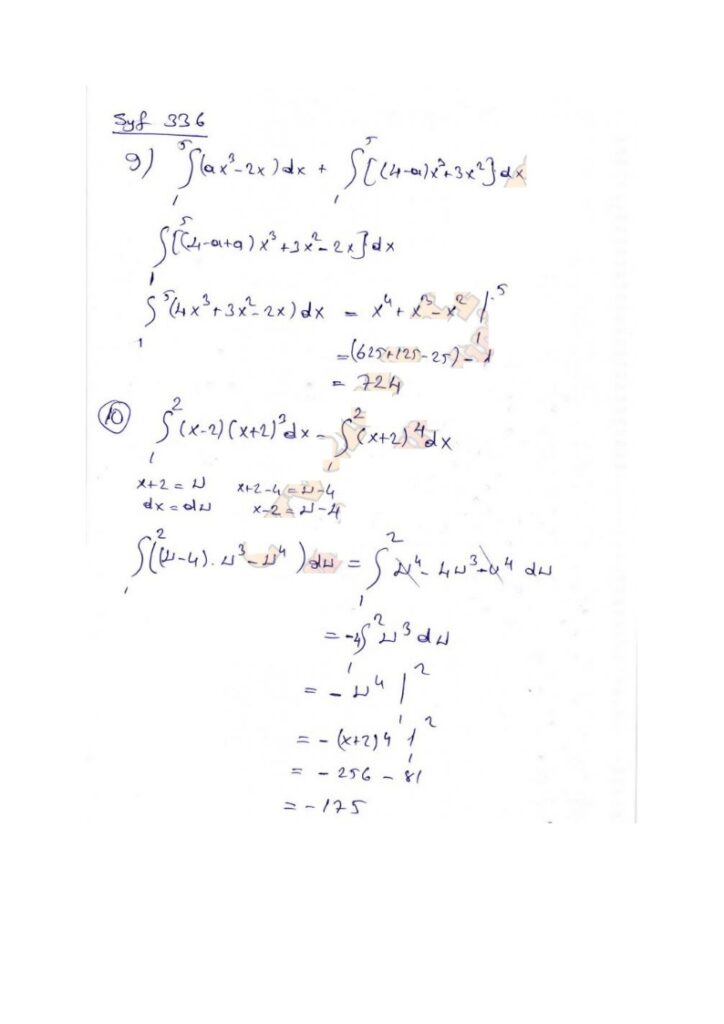 Syf 336
9) ∫₁⁵(ax³-2x)dx + ∫₁⁵[(4-a)x³+3x²]dx
∫₁⁵[(4-a+a)x³+3x²-2x]dx
∫₁⁵(4x³+3x²-2x)dx = x⁴+x³-x² |₁⁵
=(625+125-25)-1
= 724
10 ∫₁²(x-2)(x+2)³dx-∫₁²(x+2)⁴dx
x+2=u x+2-4=u-4
dx=du x-2=u-4
∫₁²((u-4).u³-u⁴)du = ∫₁² u⁴-4u³-u⁴ du
= -4∫₁² u³du
= -u⁴ |₁²
= -(x+2)4 |₁²
= -256-81
= -175